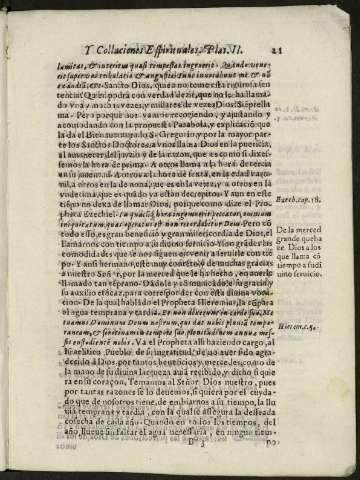 Y Collaciones Espirituales. Plat. II. 21
lamitas, & interitus quasi tempestas ingruerit. Quando vene-
rit super vos tribulatio & angustia: tunc invocabunt me & nõ
exaudiã, &c. Santo Dios, quien no tome esta rigurosa sen-
tencia? Quien podrà con verdad dezir, que no lo ha llama-
do vna y muchas vezes, y millares de vezes Dios? Siẽpre lla-
ma. Pero porque aora vamos recogiendo, y ajustando y
acomodando con la propuesta Parabola, y explicaciõ que
la da el Bienauenturado S. Gregorio, y por la mayor par-
te los Sanctos Doctores: a vnos llama Dios en la puericia,
al amanecer del juyzio y de la razon, que es como si dixes-
semos a hora de prima. A otros llama a la hora de tercia
en su juuentud. A otros a la hora de sexta, en la edad varo-
nil, a otros en la de nona, que es en la vejez, y a otros en la
vndecima, que es quando ya estan decrepitos. Y aun en este
tiempo no dexa de llamar Dios, porque como dize el Pro-
pheta Ezechiel: In quacũq; hora ingemuerit peccator, omnium
iniquitatum quas operatus est non recordabor. Pero
Ezech. cap. 18.
todo esso, es gran beneficio y gran misericordia de Dios, el
llamarnos con tiempo a su diuino seruicio.
De la merced
Grande que ha-
ze Dios a los
que llama cõ
tiempo a su di
uino seruicio.
Y ansi hermano, este muy
a nuestro Señor, por la merced que le ha hecho, en auerle
llamado tan temprano.
su auxilio eficaz, para corresponder con esta diuina voca-
cion. De la qual hablado el Propheta Hieremias, la
el agua temprana y tardia. Et non dixerunt in corde suo, Me-
tuamus Dominum Deum nostrum, qui dat nobis pluuiã tempa-
raneam, & serotinam in tempore suo, plenitudinem annuæ mes-
sis custodientẽ nobis. Va el Propheta alli haziendo cargo, al
Hierem. c. 5.
Israelitico Pueblo de su ingratitud, de no auer sido agra-
decido a Dios por tantos beneficios, y mercedes, como de
la mano de su diuina largueza auia recibido, y dicho si quie
ra en su coraçon, Temamos al Señor Dios nuestro, pues
por tantas razones se lo deuemos, si quiera por el cuyda-
do que de nosotros tiene, de embiarnos a su tiempo, la llu
uia temprana y tardia, con la qual se assegura la desseada
cosecha de cada año. Quando en todos los tiempos, del
año, llueue sin faltar el agua necessaria, en ningun tiem-
D 3 po